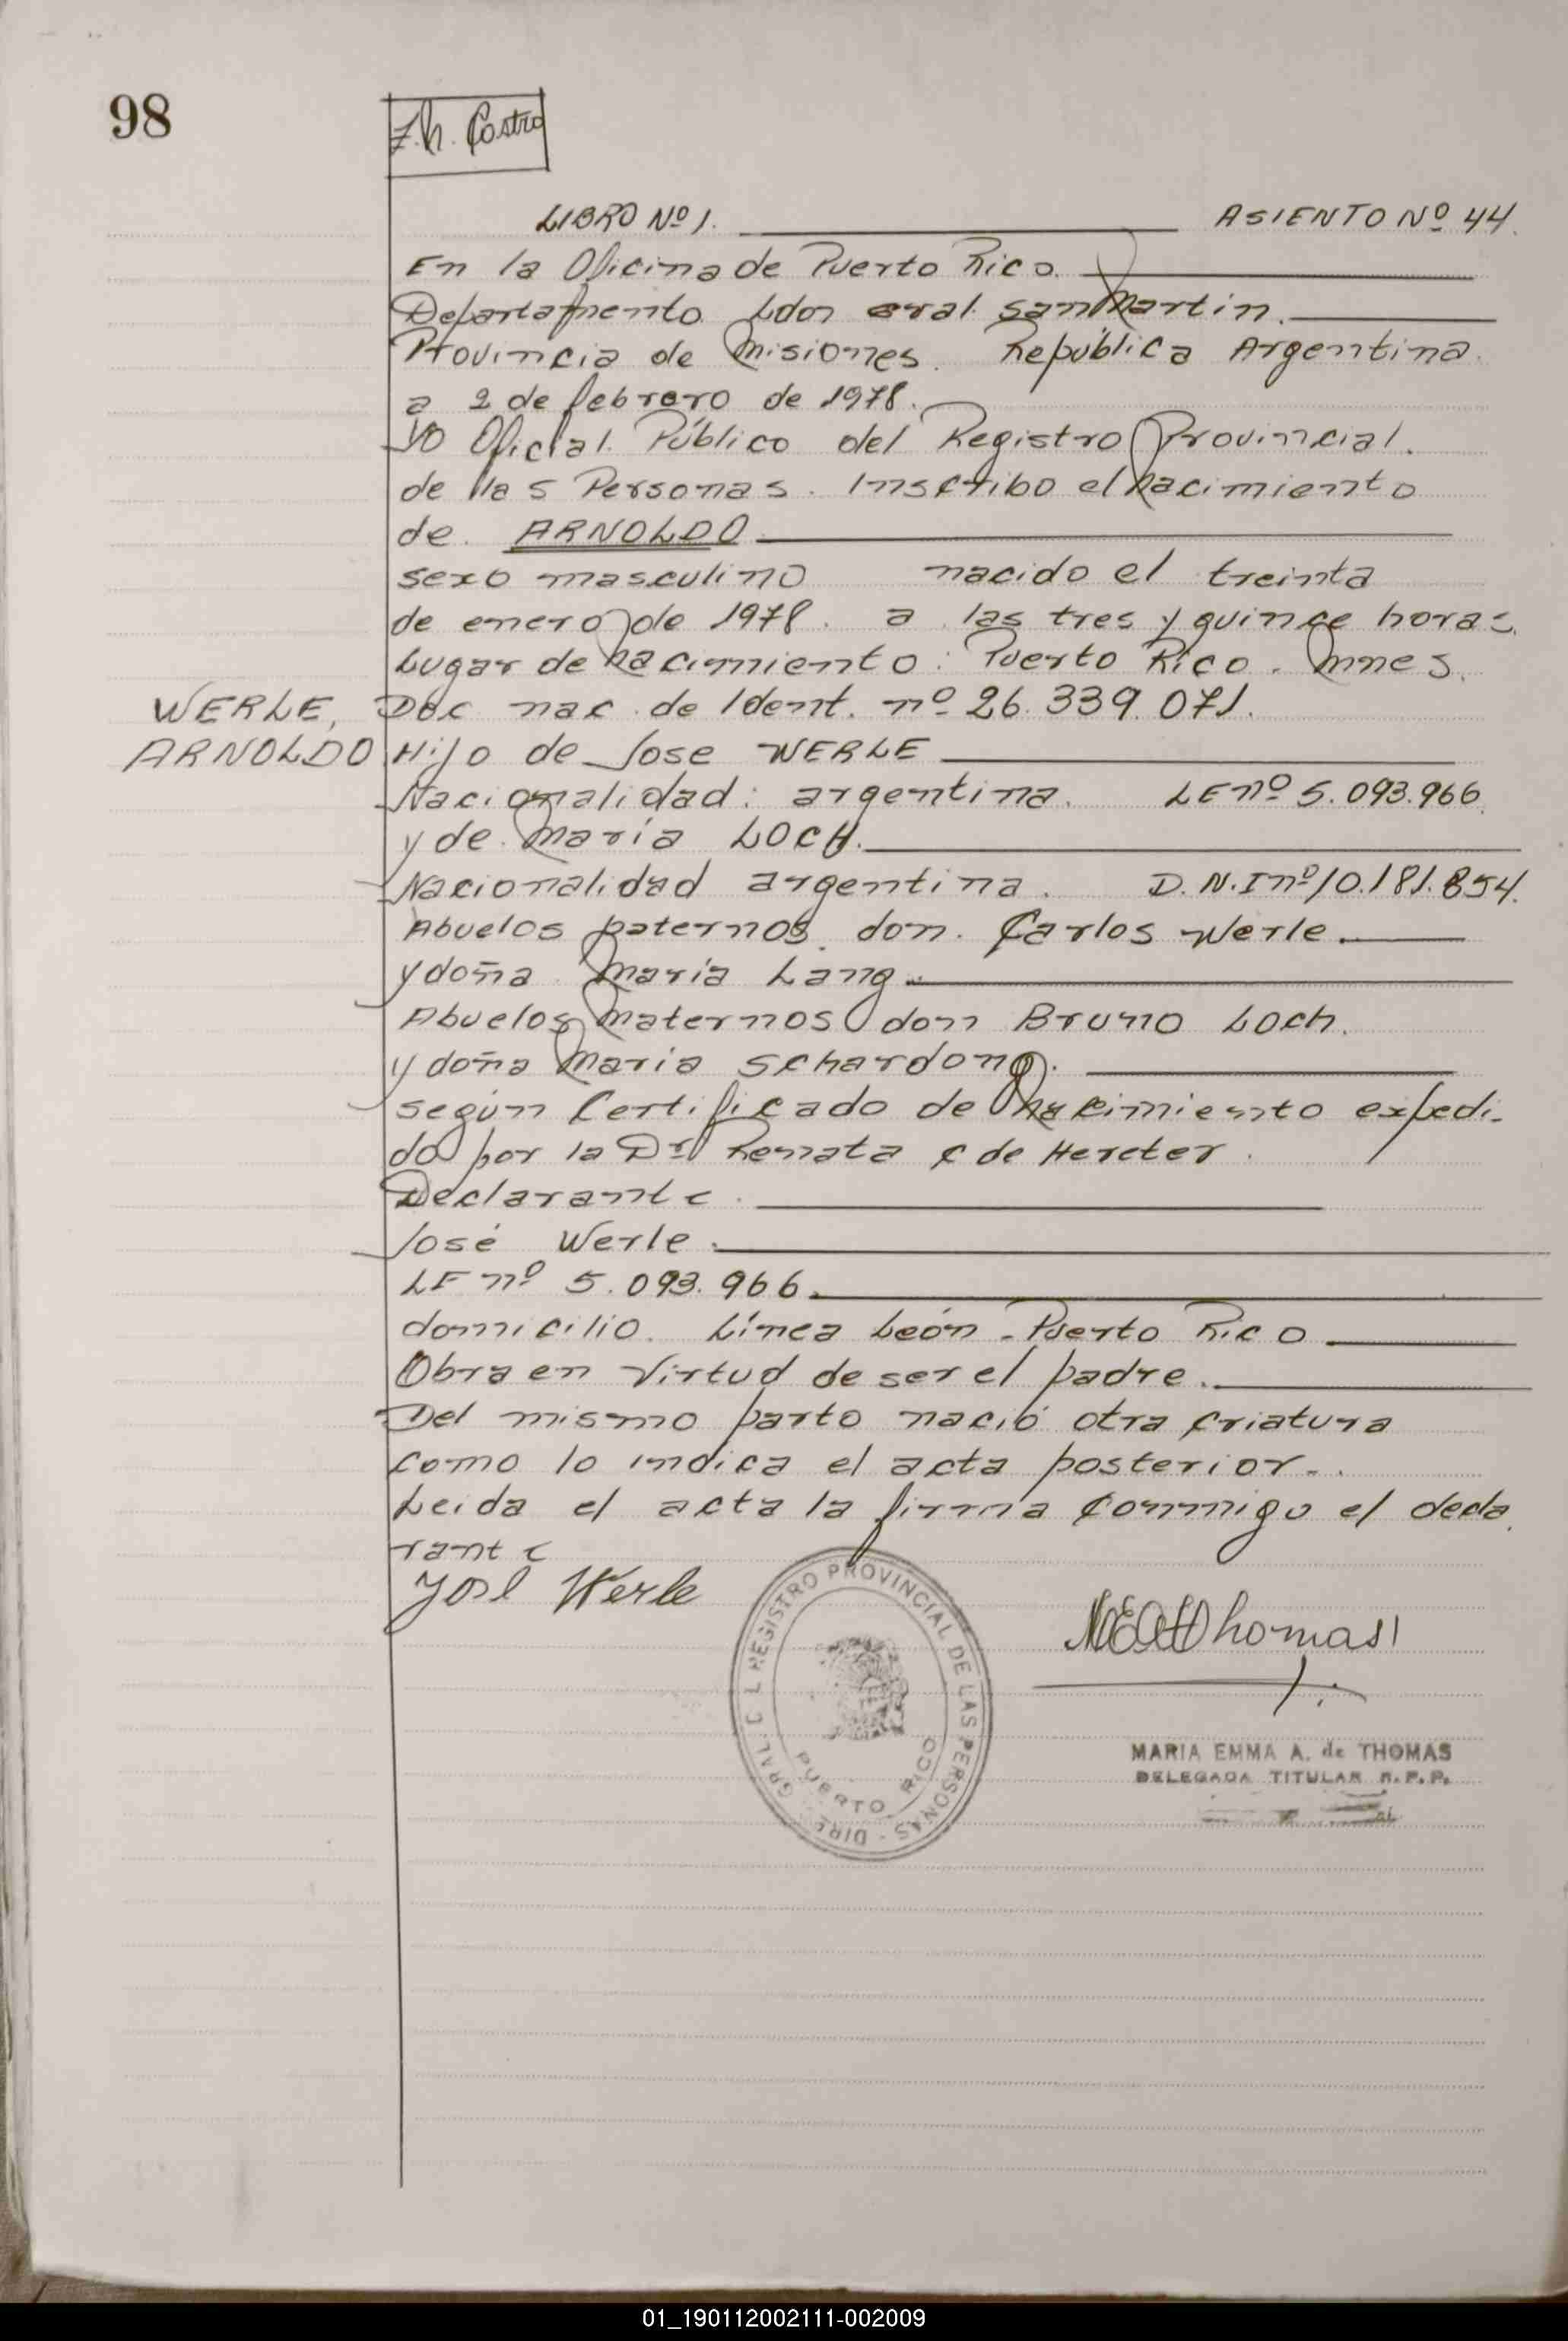 98
Z.h. Castro
LIBRO Nº 1. ASIENTO Nº 44.
En la Oficina de Puerto Rico.
Departamento Ldor Gral. San Martin.
Provincia de Misiones. República Argentina.
a 2 de febrero de 1978.
Yo Oficial Público del Registro Provincial.
de las Personas. Inscribo el Nacimiento
de. ARNOLDO
sexo masculino nacido el treinta
de enero de 1978. a las tres y quince horas.
Lugar de Nacimiento: Puerto Rico. Mnes.
WERLE, ARNOLDO
Doc nac. de Ident. nº 26.339.071.
Hijo de Jose WERLE
Nacionalidad: argentina. LE nº 5.093.966.
y de Maria LOCH.
Nacionalidad argentina. D.N.I nº 10.181.854.
Abuelos paternos. don. Carlos Werle.
y doña Maria Lang.
Abuelos Maternos don Bruno Loch.
y doña Maria Schardong.
según Certificado de Nacimiento expedi-
do por la Drª Renata C de Hereter.
Declarante.
José Werle.
LE nº 5.093.966.
domicilio. Línea León - Puerto Rico
Obra en Virtud de ser el padre.
Del mismo parto nació otra criatura
como lo indica el acta posterior.
Leida el acta la firma conmigo el decla
rante
José Werle
Thomas
DIRE. GRAL. C L REGISTRO PROVINCIAL DE LAS PERSONAS -
PUERTO RICO
MARIA EMMA A. de THOMAS
DELEGADA TITULAR R.P.P.
01_190112002111-002009